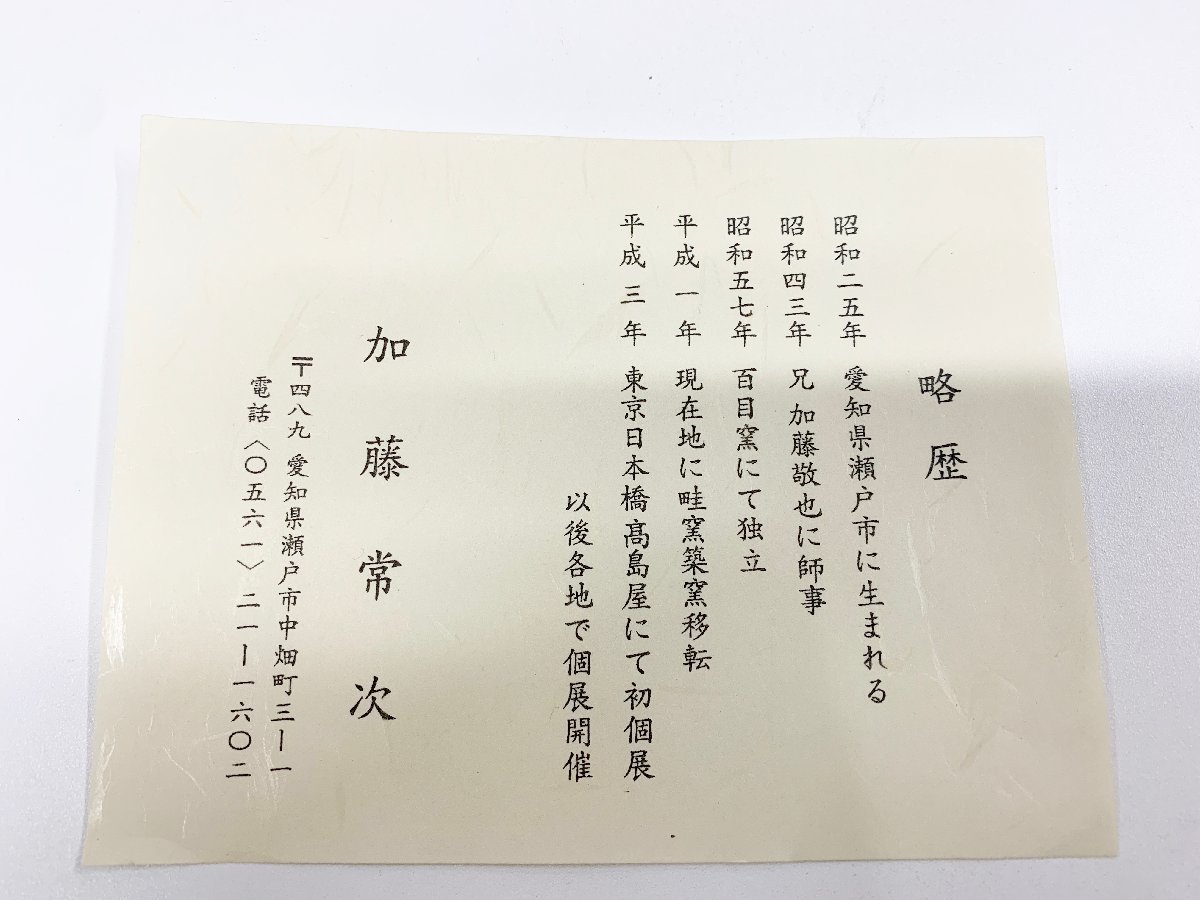 略歴
昭和二五年 愛知県瀬戸市に生まれる
昭和四三年 兄 加藤敬也に師事
昭和五七年 百目窯にて独立
平成一年 現在地に畦窯築窯移転
平成三年 東京日本橋髙島屋にて初個展
以後各地で個展開催
加藤常次
〒四八九 愛知県瀬戸市中畑町三ー一
電話〈〇五六一〉二一ー一六〇二